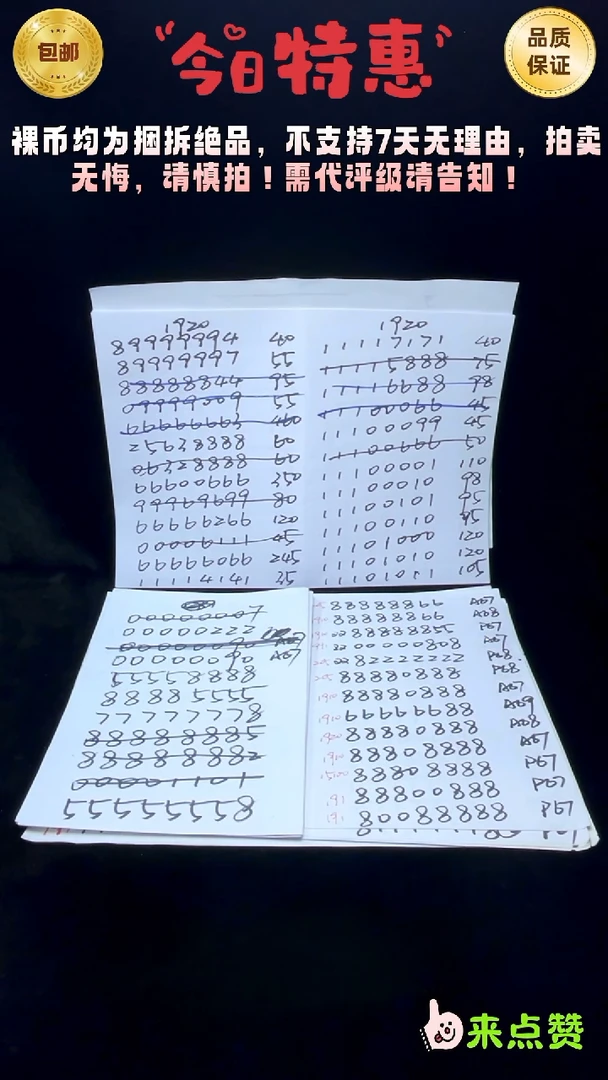 包邮
今日特惠
品质
保证
裸币均为捆拆绝品，不支持7天无理由，拍卖
无悔，请慎拍！需代评级请告知！
1920
89999994 40
89999997 55
88888844 95
09999009 55
66666663 460
25638888 60
06328888 60
66600666 350
99969699 80
66666266 120
00006111 45
66666066 245
11114141 35
1920
11117171 40
11115888 75
11116688 98
11100066 45
11100099 45
11100666 50
11100001 110
11100010 98
11100101 95
11100110 95
11101000 120
11101010 120
11101011 105
00000007
00000222
00000090
55558888
88885555
77777778
88888885
88888882
00001101
55555558
88888866 A67
88888866 A68
88888855 P67
000000808 A67
82222222 P68
88880888 P68
88880888 A67
66666688 A69
88880888 A68
88808888 A67
88808888 P67
88800888 P67
80088888 P67
来点赞